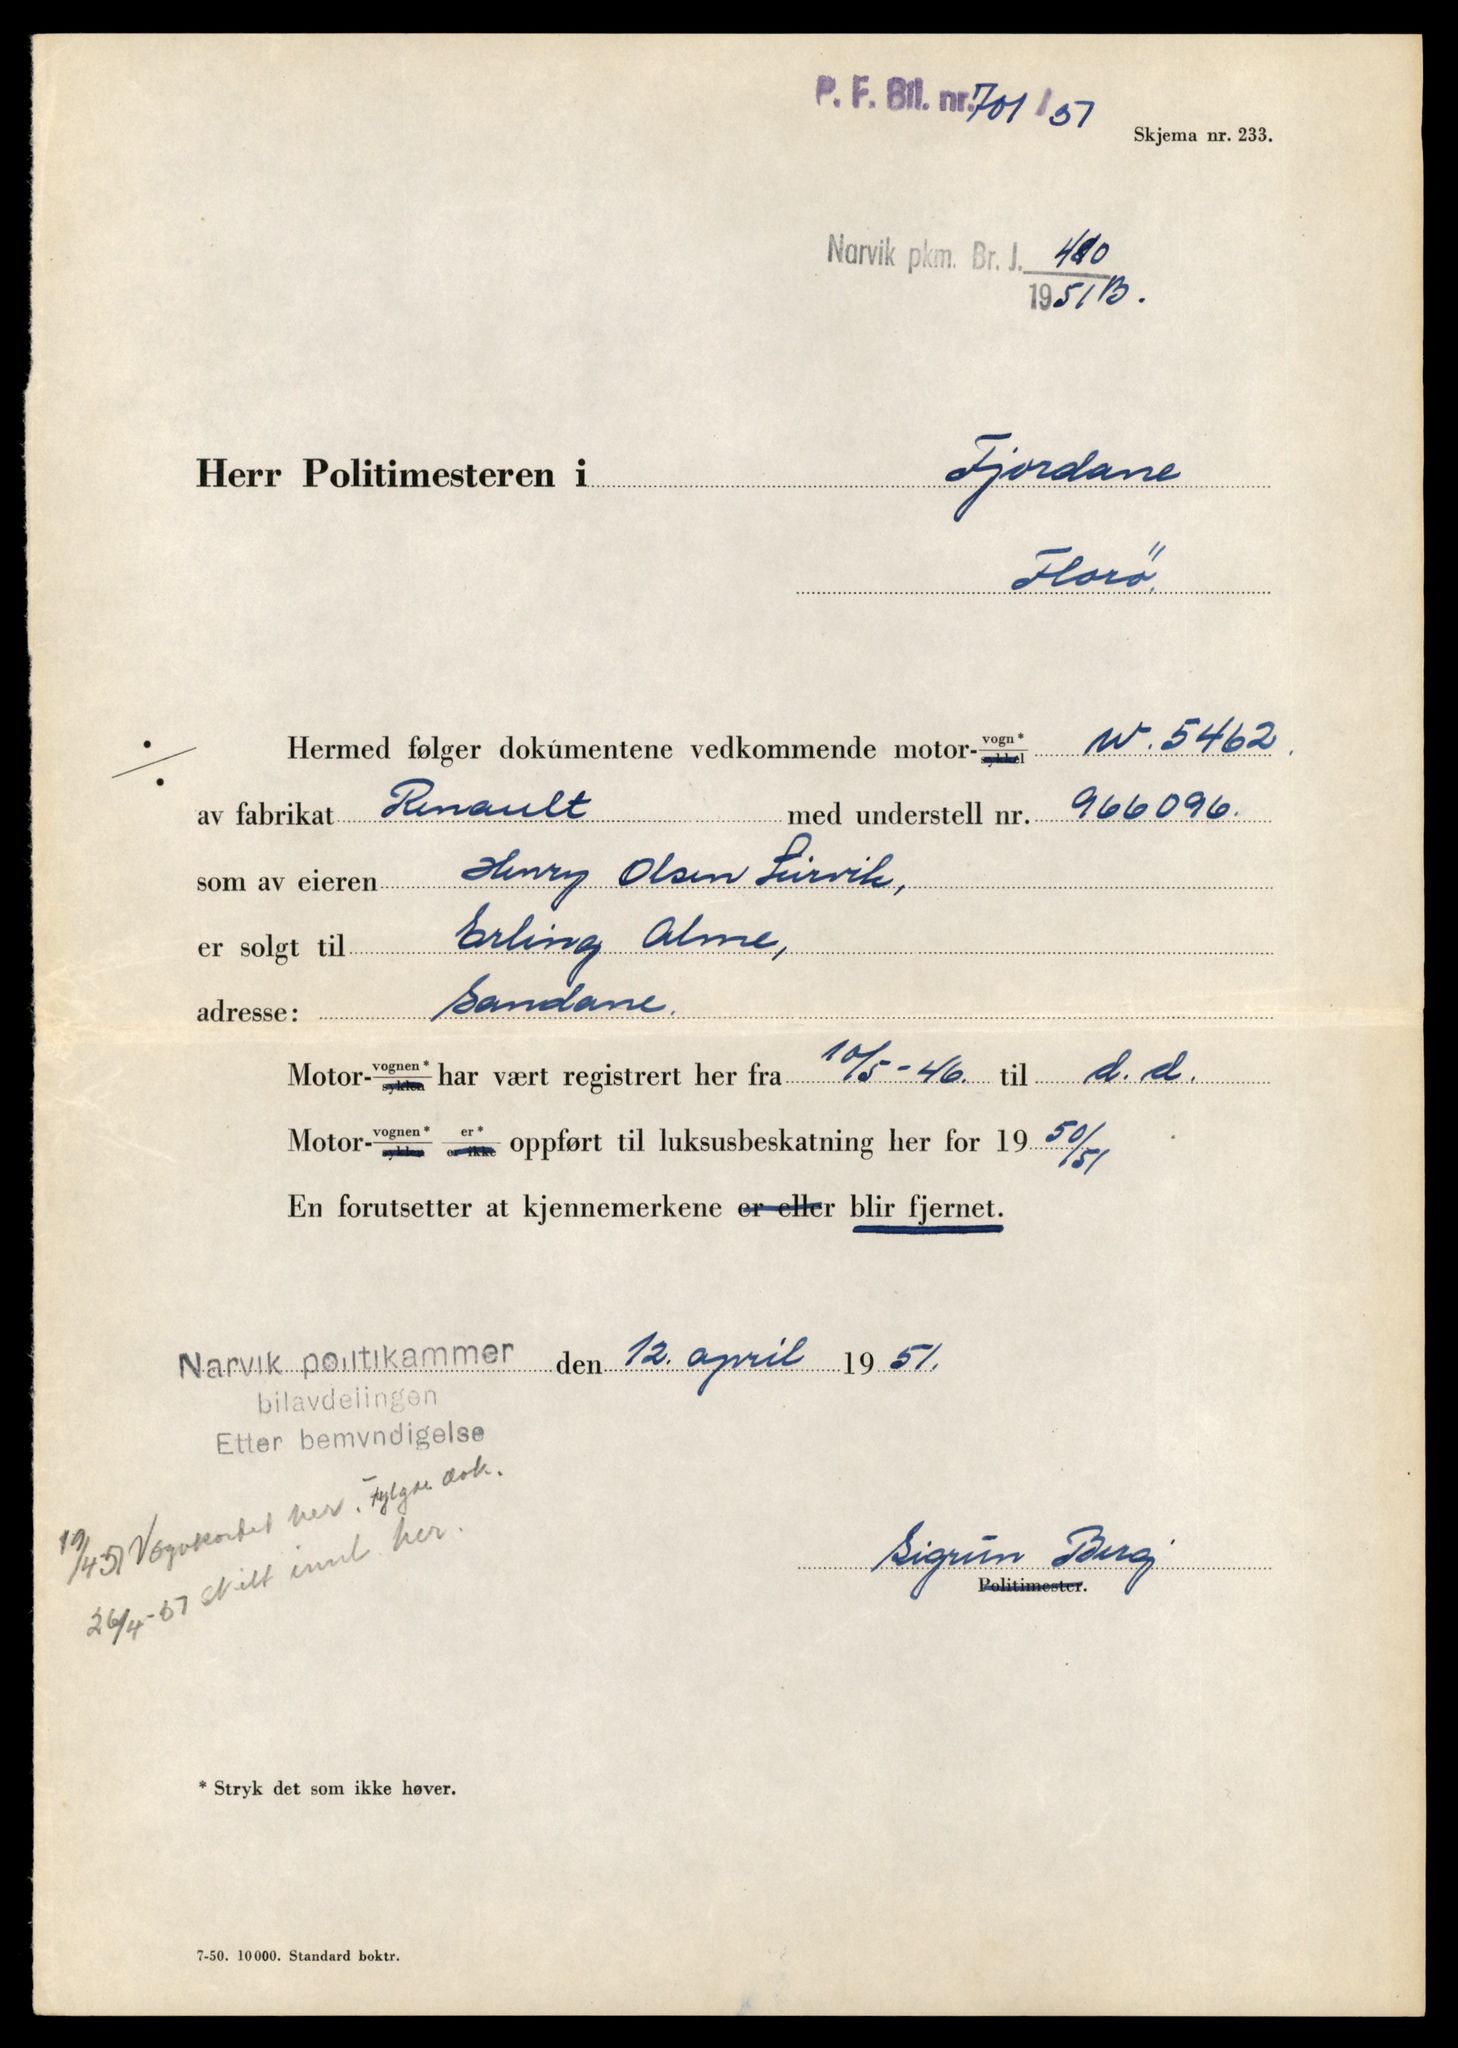 P. F. Bil. nr. 701/51
Skjema nr. 233.
Narvik pkm. Br. J. 410
1951 B.
Herr Politimesteren i Fjordane
Florö.
Hermed følger dokumentene vedkommende motor-vogn*/sykkel W. 5462.
av fabrikat Renault med understell nr. 966096.
som av eieren Henry Olsen Leirvik,
er solgt til Erling Alme,
adresse: Sandane.
Motor-vognen*/sykkelen har vært registrert her fra 10/5-46. til d.d.
Motor-vognen*/sykkelen er*/er ikke oppført til luksusbeskatning her for 1950/51
En forutsetter at kjennemerkene er eller blir fjernet.
Narvik politikammer den 12. april 1951.
bilavdelingen
Etter bemyndigelse
19/4-51 Vognkortet her. Fylgde dok.
26/4-51 skilt innl. her.
Sigrun Berg
Politimester.
* Stryk det som ikke høver.
7-50. 10000. Standard boktr.